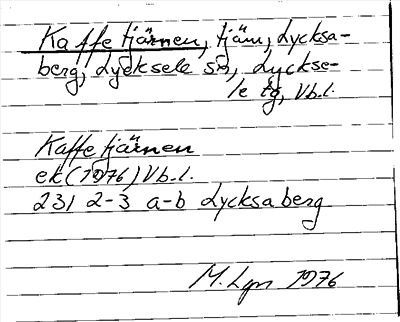 Kaffetjärnen, tjärn, Lycksa-
berg, Lycksele sn, Lyckse-
le tg, Vb.l.
Kaffetjärnen
ek (1976) Vb.l.
231 2-3 a-b Lycksaberg
M. Lgn 1976